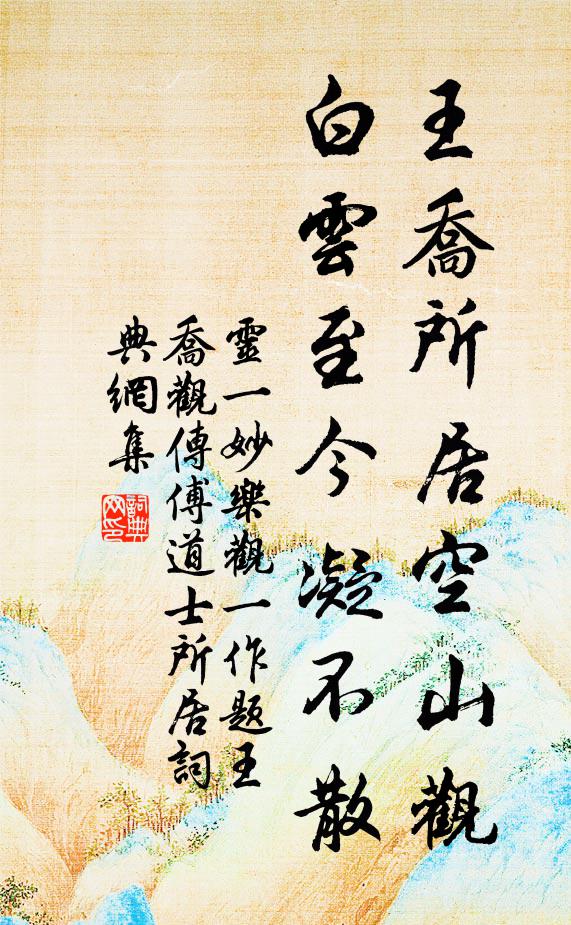 王喬所居空山觀
白雲至今凝不散
靈一妙樂觀一作題王
喬觀傳傅道士所居詞
典網集
詞典
网印